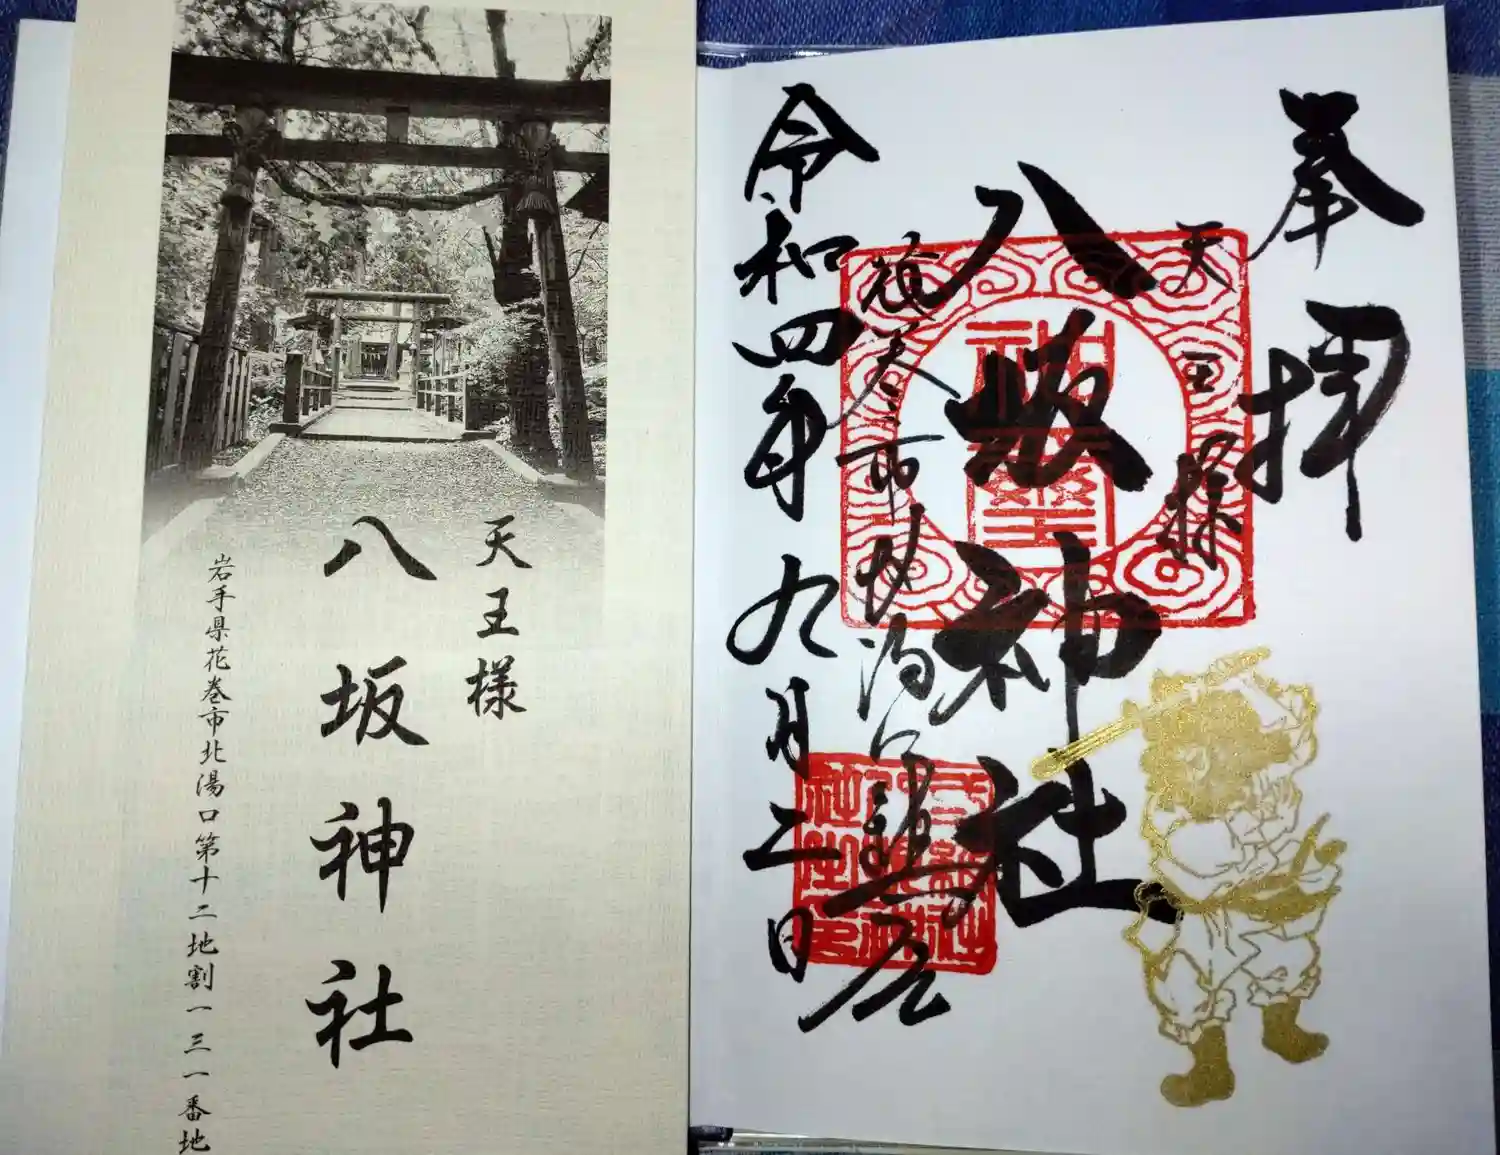 天王様
八坂神社
岩手県花巻市北湯口第十二地割一三一番地
奉拝
天王様
八坂神社
令和四年九月二日